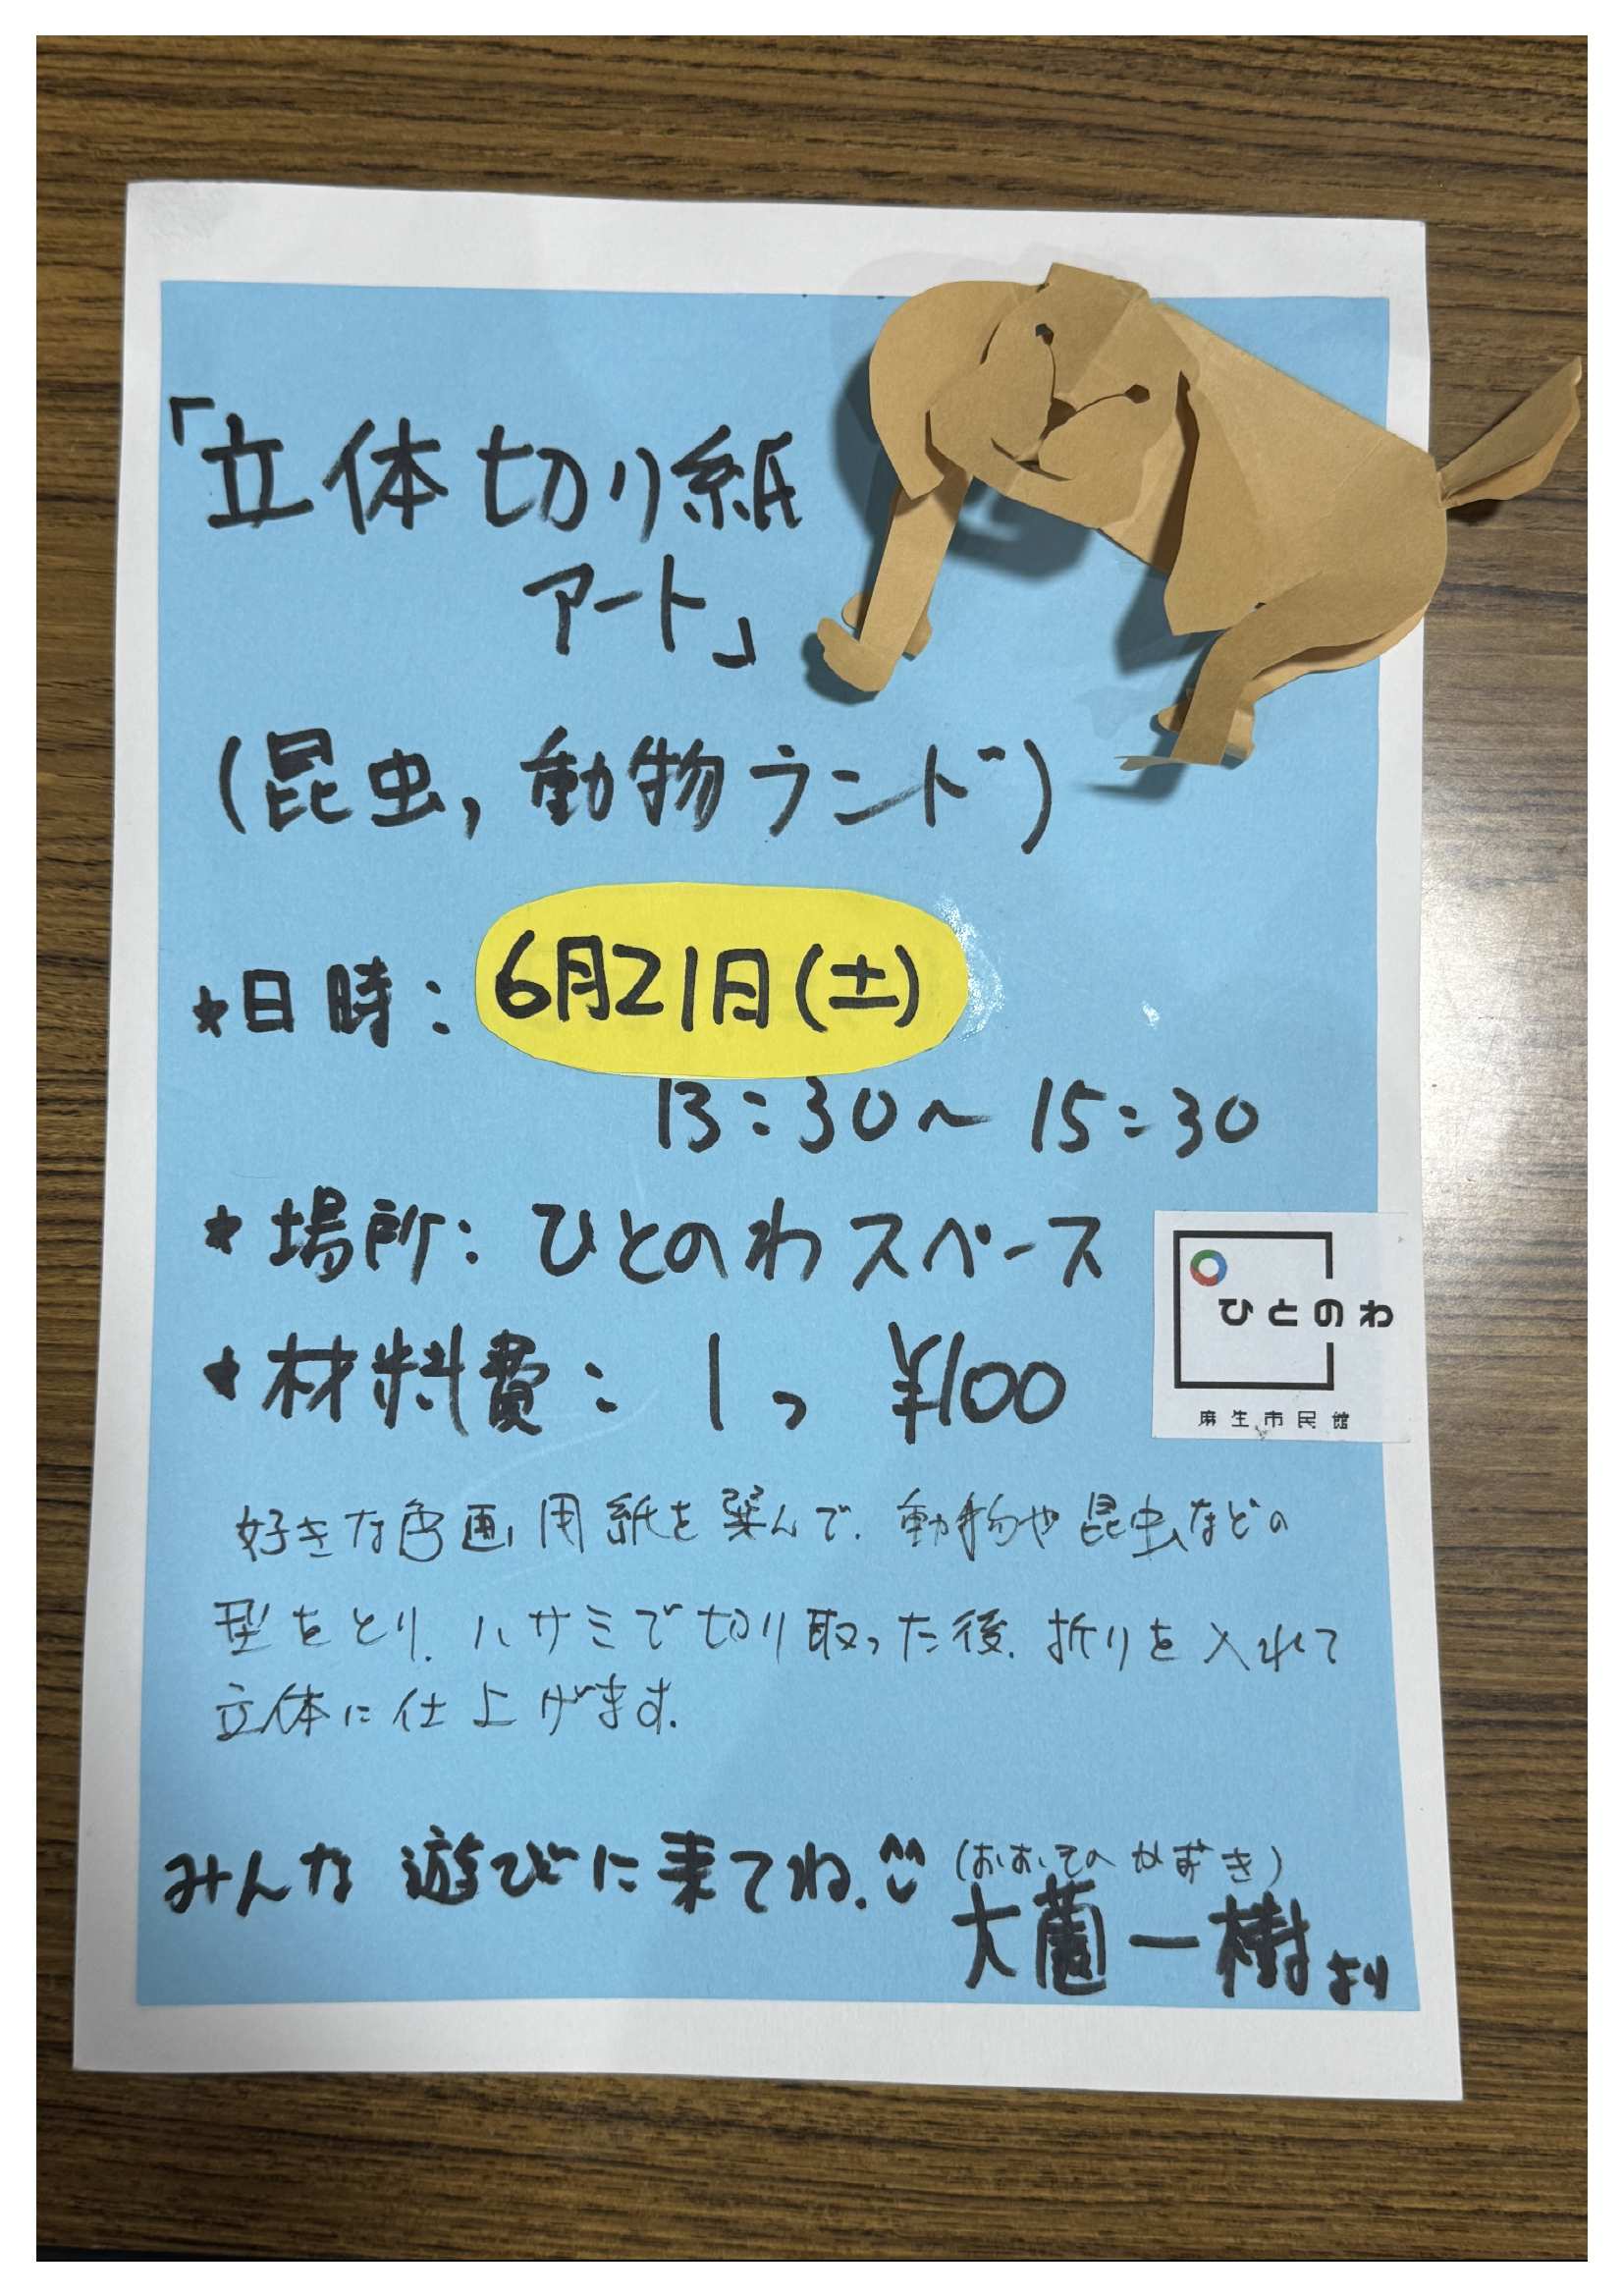 「立体切り紙
アート」
(昆虫, 動物ランド)
★日時: 6月21日(土)
13:30〜15:30
★場所: ひとのわスペース
ひとのわ
麻生市民館
★材料費: 1つ ¥100
好きな色画用紙を選んで、動物や昆虫などの
型をとり、ハサミで切り取った後、折りを入れて
立体に仕上げます。
みんな遊びに来てね。
(おおぞの かずき)
大薗一樹より